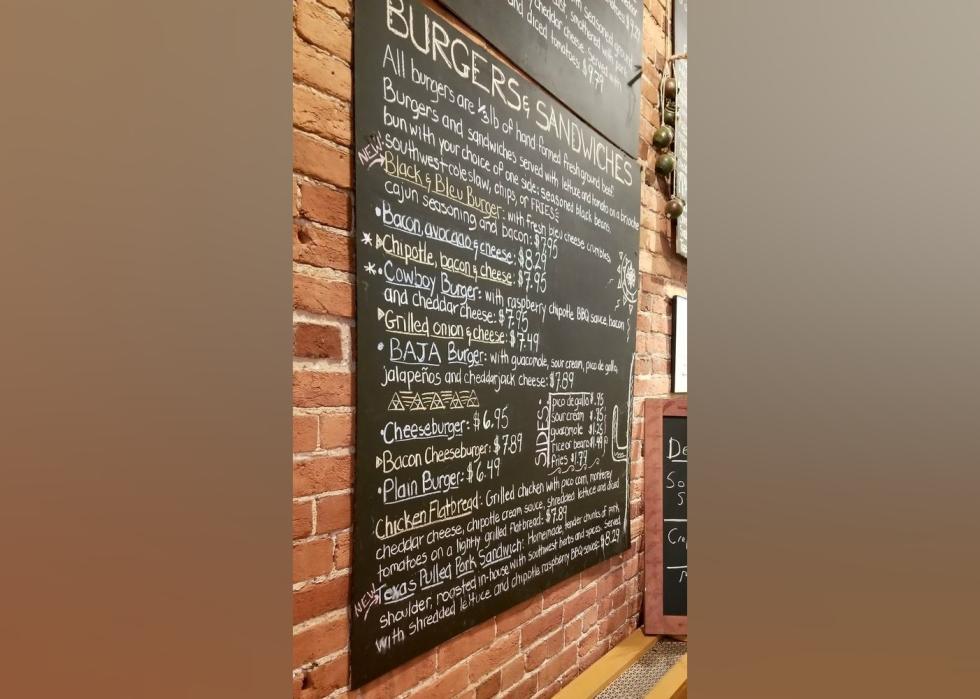 and diced tomatoes: $9.79
BURGERS & SANDWICHES
All burgers are 1/3 lb of hand formed fresh ground beef.
Burgers and sandwiches served with lettuce and tomato on a brioche
bun with your choice of one side: seasoned black beans,
southwest coleslaw, chips, or FRIES
NEW! Black & Bleu Burger: with fresh bleu cheese crumbles,
cajun seasoning and bacon: $7.95
• Bacon, avocado & cheese: $8.29
* Chipotle, bacon & cheese: $7.95
* • Cowboy Burger: with raspberry chipotle BBQ sauce, bacon
and cheddar cheese: $7.95
Grilled onion & cheese: $7.49
• BAJA Burger: with guacamole, sour cream, pico de gallo,
jalapeños and cheddarjack cheese: $7.89
• Cheeseburger: $6.95
Bacon Cheeseburger: $7.89
• Plain Burger: $6.49
SIDES:
pico de gallo $.95
sour cream $.75
guacamole $1.25
rice or beans $1.99
fries $1.79
Chicken Flatbread: Grilled chicken with pico corn, monterey
cheddar cheese, chipotle cream sauce, shredded lettuce and diced
tomatoes on a lightly grilled flatbread: $7.89
NEW! Texas Pulled Pork Sandwich: Homemade, tender chunks of pork
shoulder, roasted in-house with southwest herbs and spices. Served
with shredded lettuce and chipotle raspberry BBQ sauce: $8.29
De
So
S